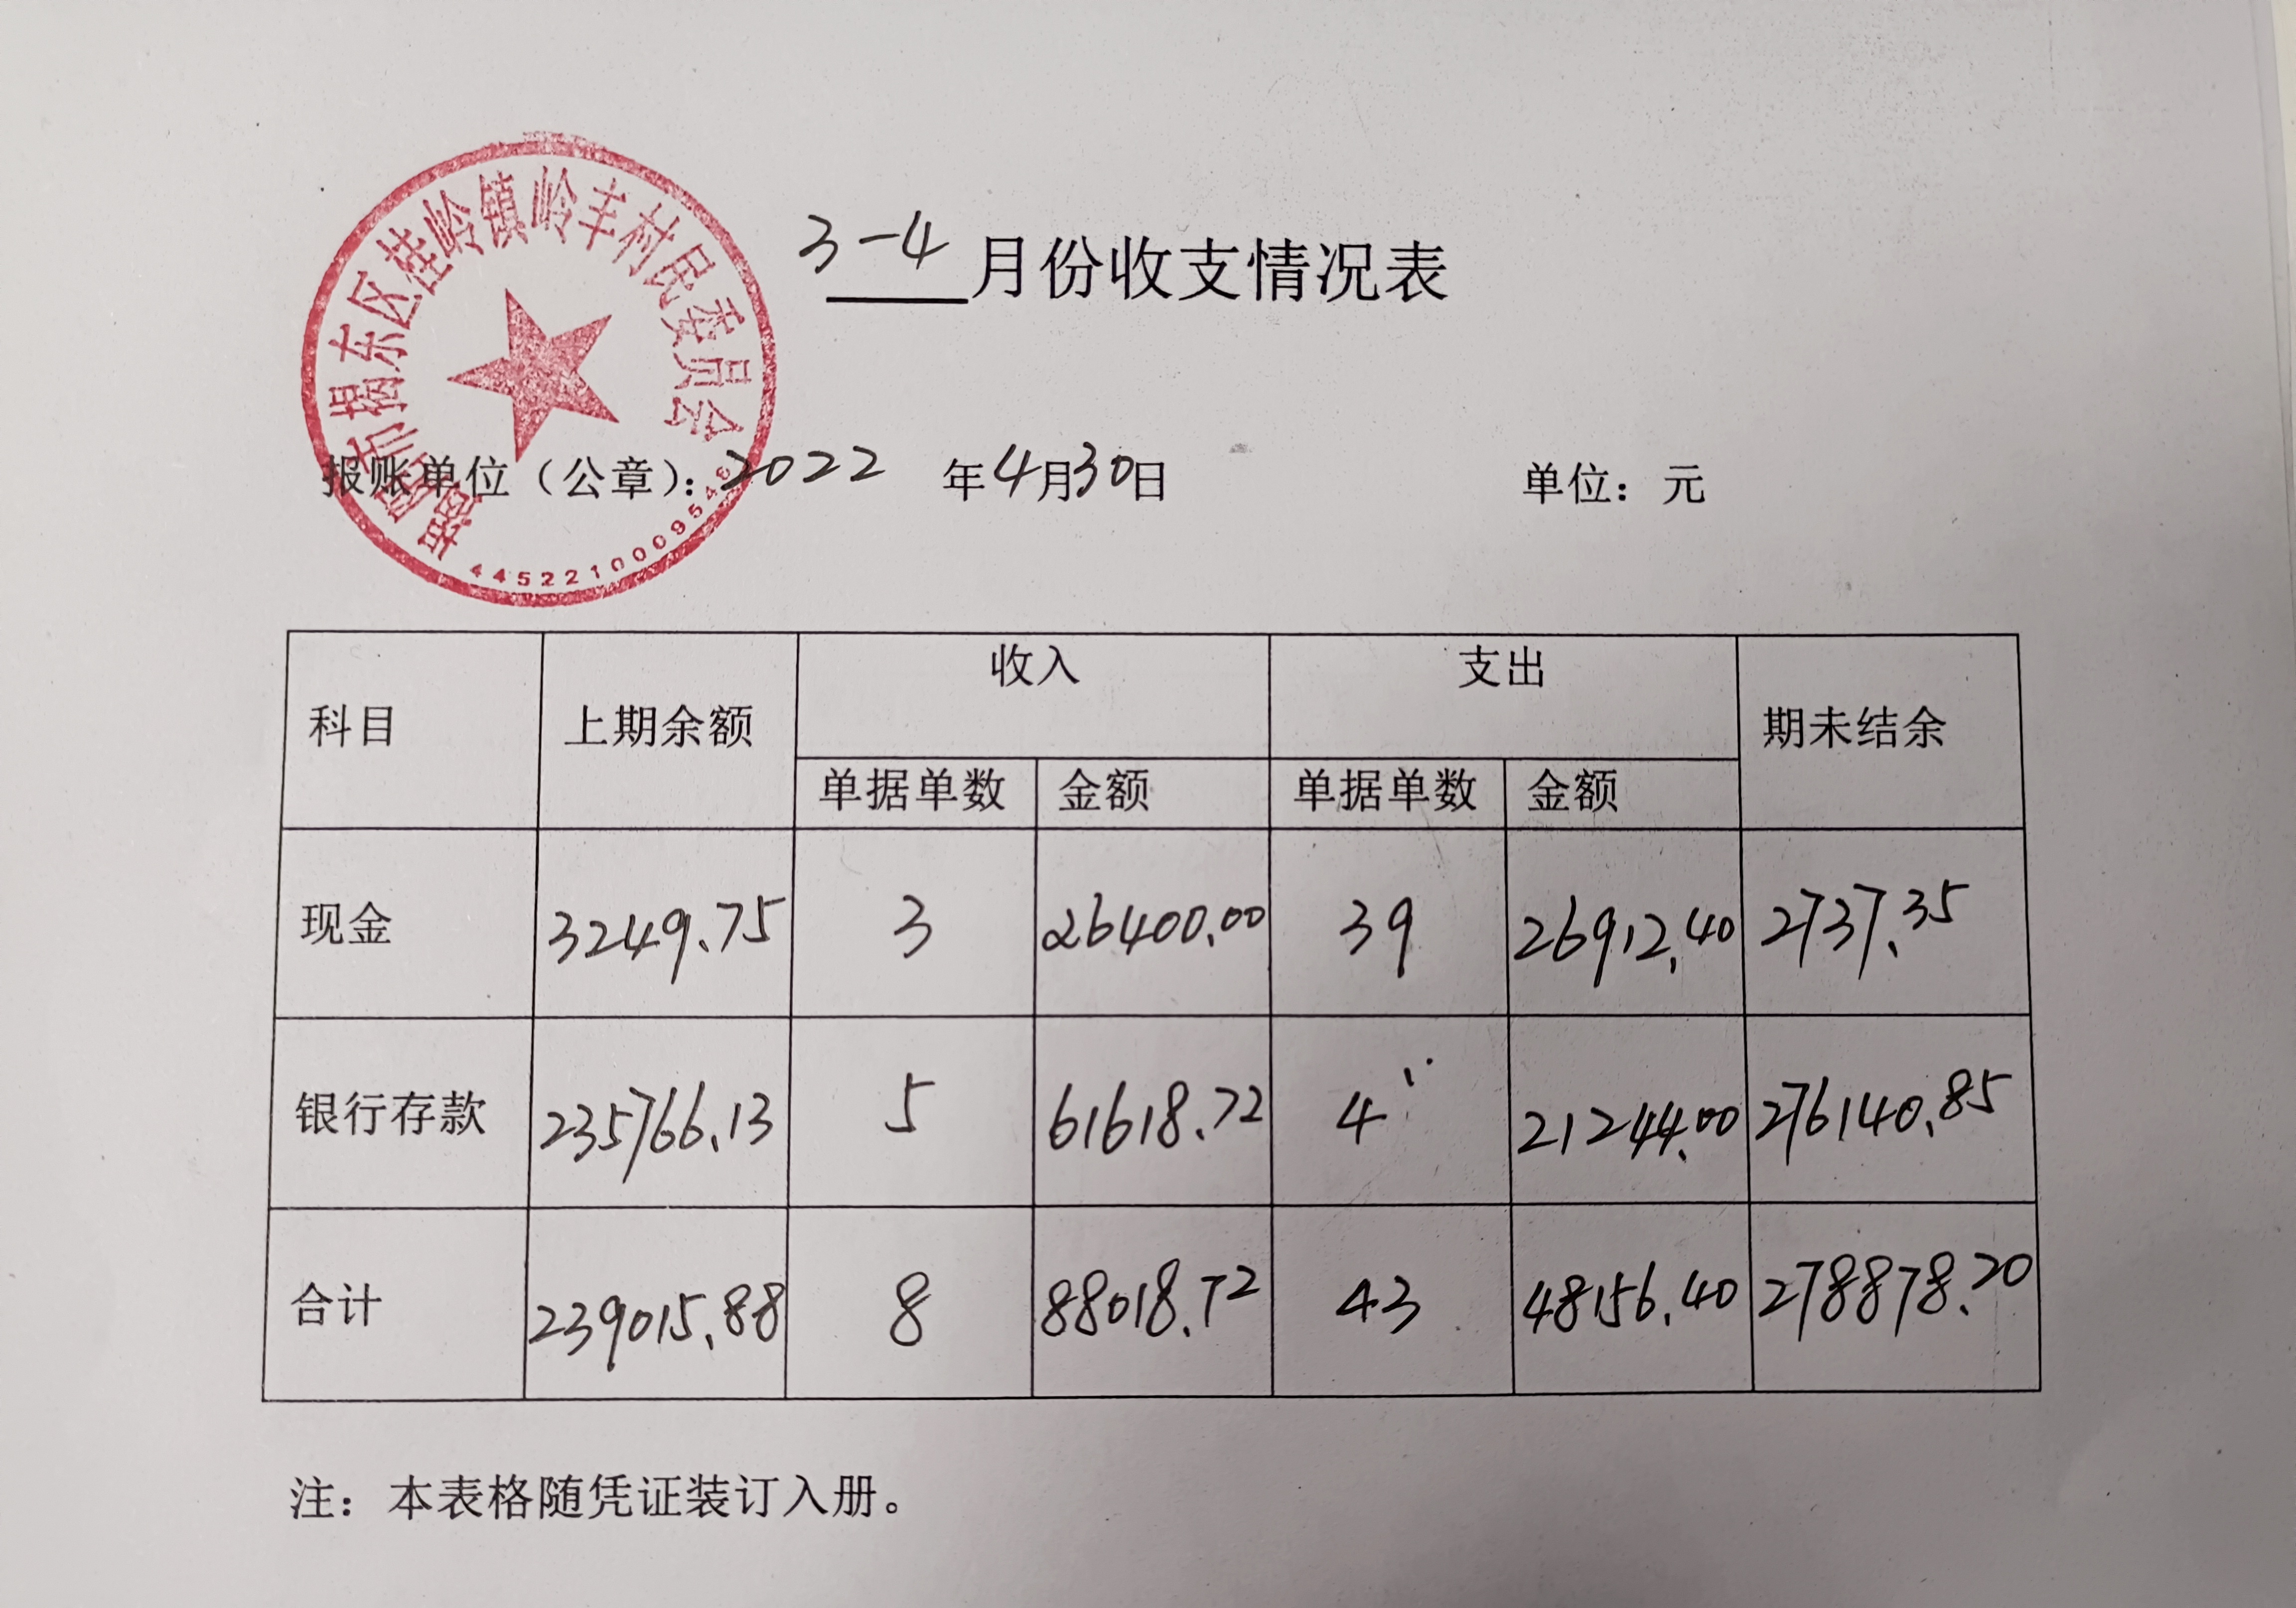 揭阳市揭东区桂岭镇岭丰村民委员会
3-4月份收支情况表
报账单位（公章）：2022 年4月30日 单位：元
科目 上期余额 收入 支出 期未结余
单据单数 金额 单据单数 金额
现金 3249.75 3 26400.00 39 26912.40 2737.35
银行存款 235766.13 5 61618.72 4 21244.00 276140.85
合计 239015.88 8 88018.72 43 48156.40 278878.20
注：本表格随凭证装订入册。